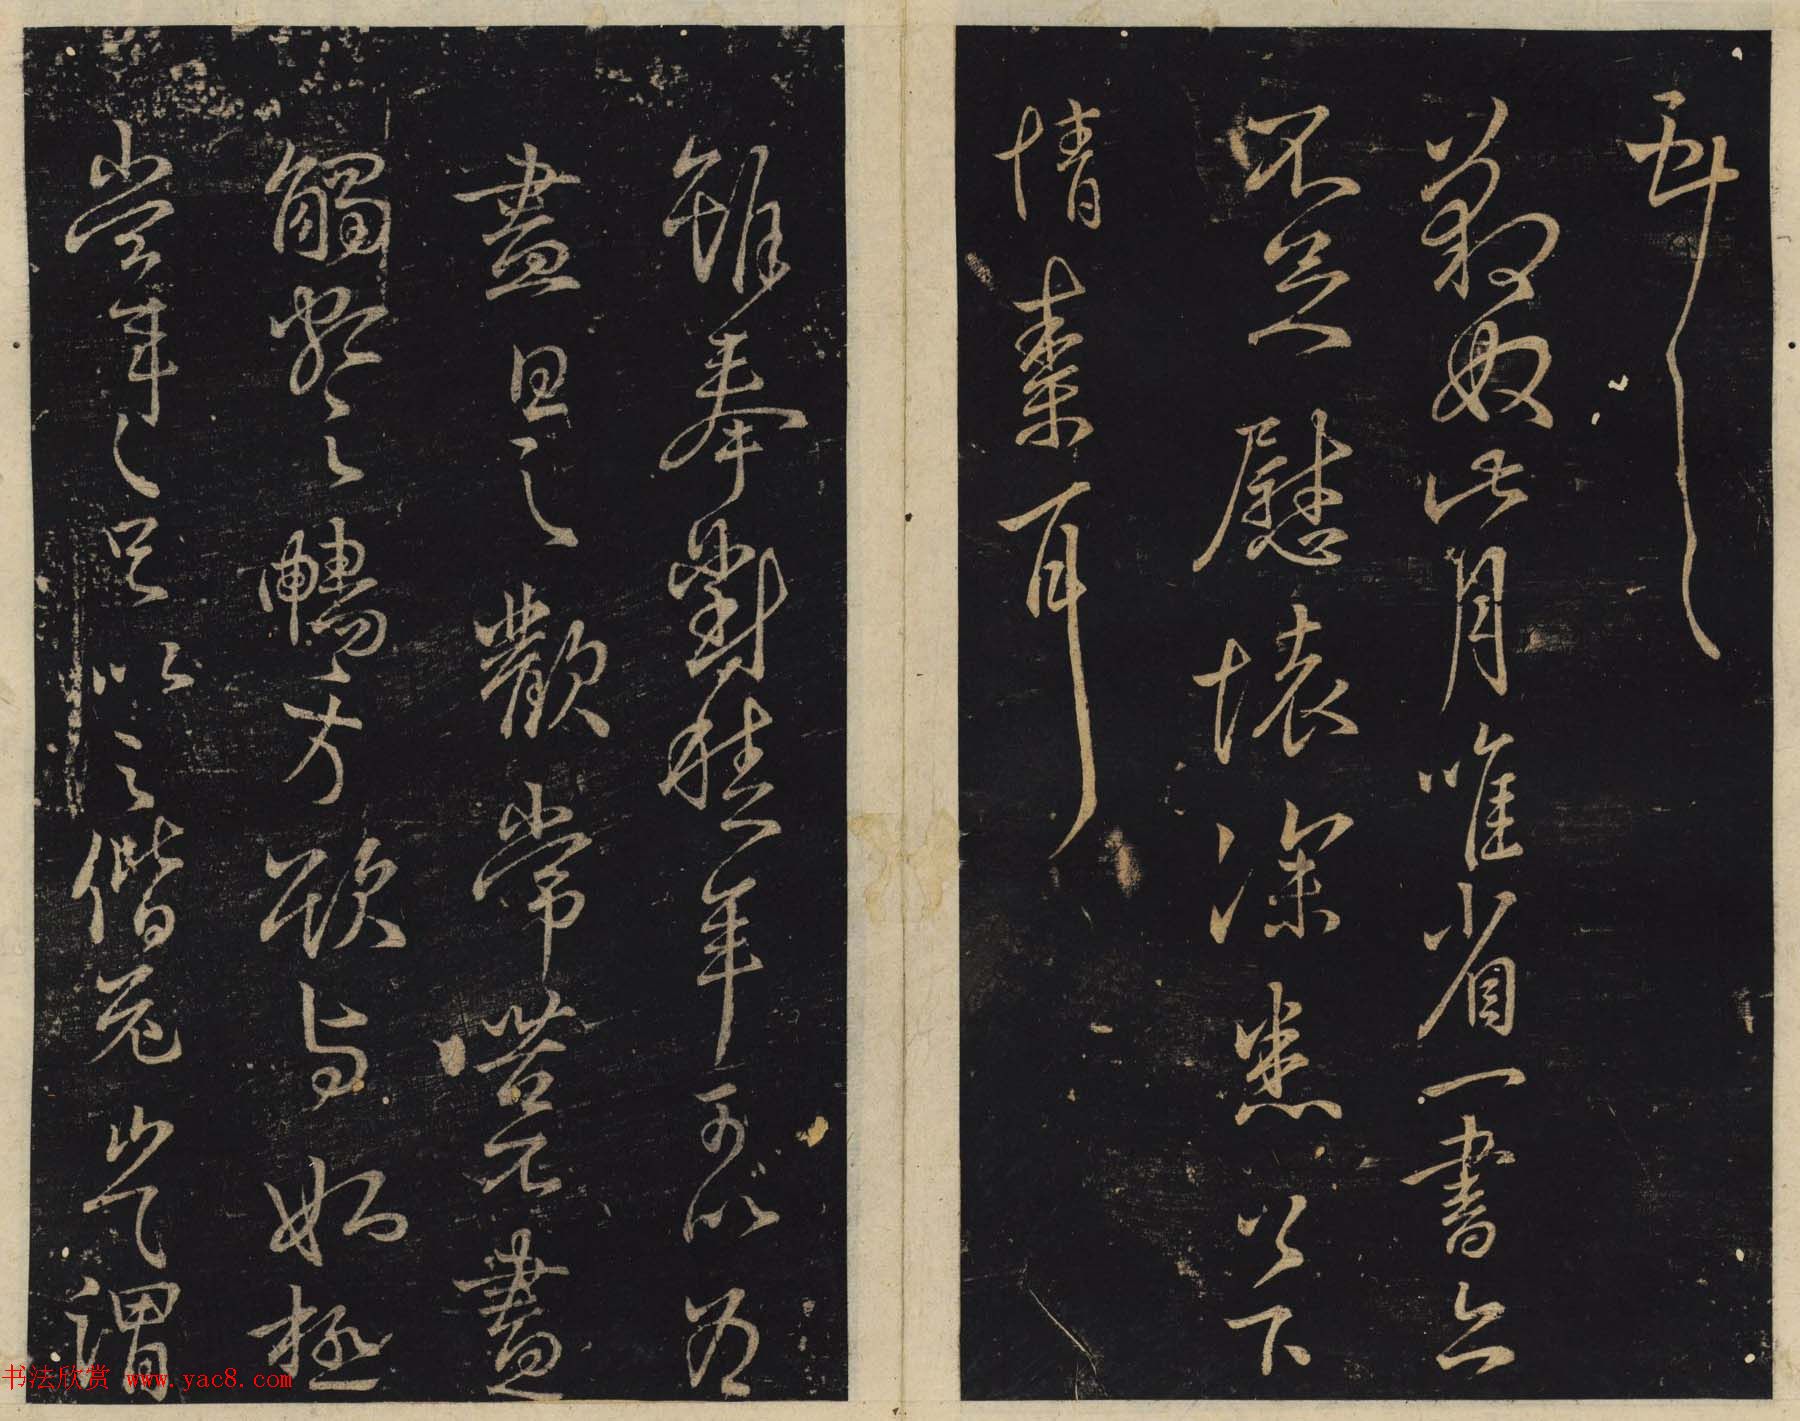 耶
奴此月唯省一書亦
不足慰懷深悉以下
情素耳
雖奉對積年可以為
盡日之歡常苦不盡
觸類之暢方欲與姊極
當年之足以之偕老豈謂
书法欣赏 www.yac8.com